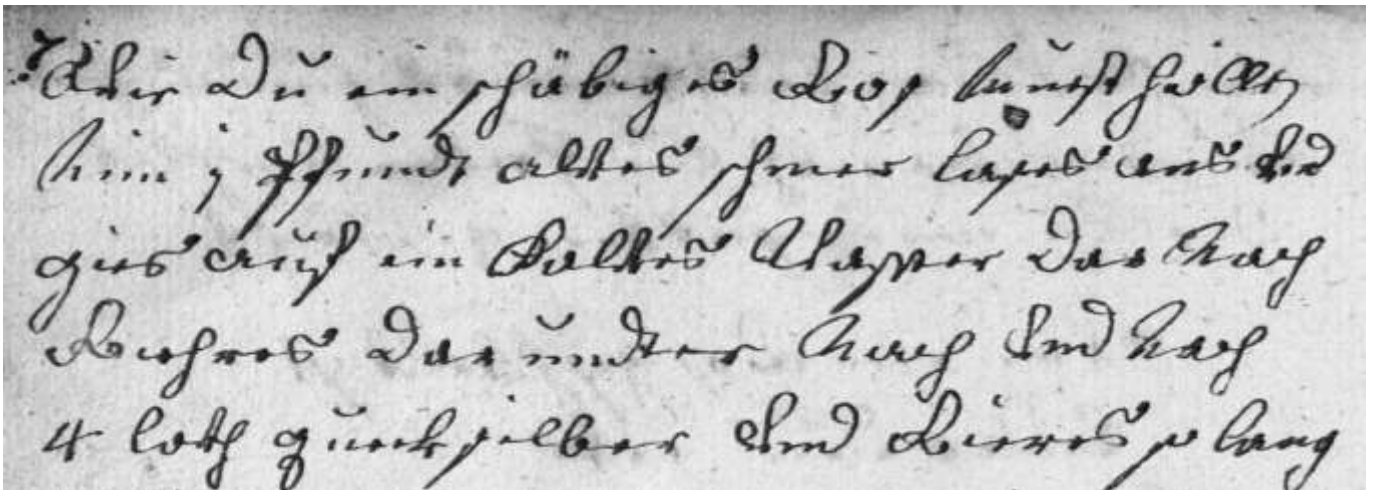 Wie Du ein schäbiges Ros kunst heillen
Nim j Pfundt altes schmer lases aus Vnd
gies auf ein Kaltes Wasser Dar Nach
Riehres Dar undter Nach Vnd Nach
4 loth queck silber Vnd Rieres so lang